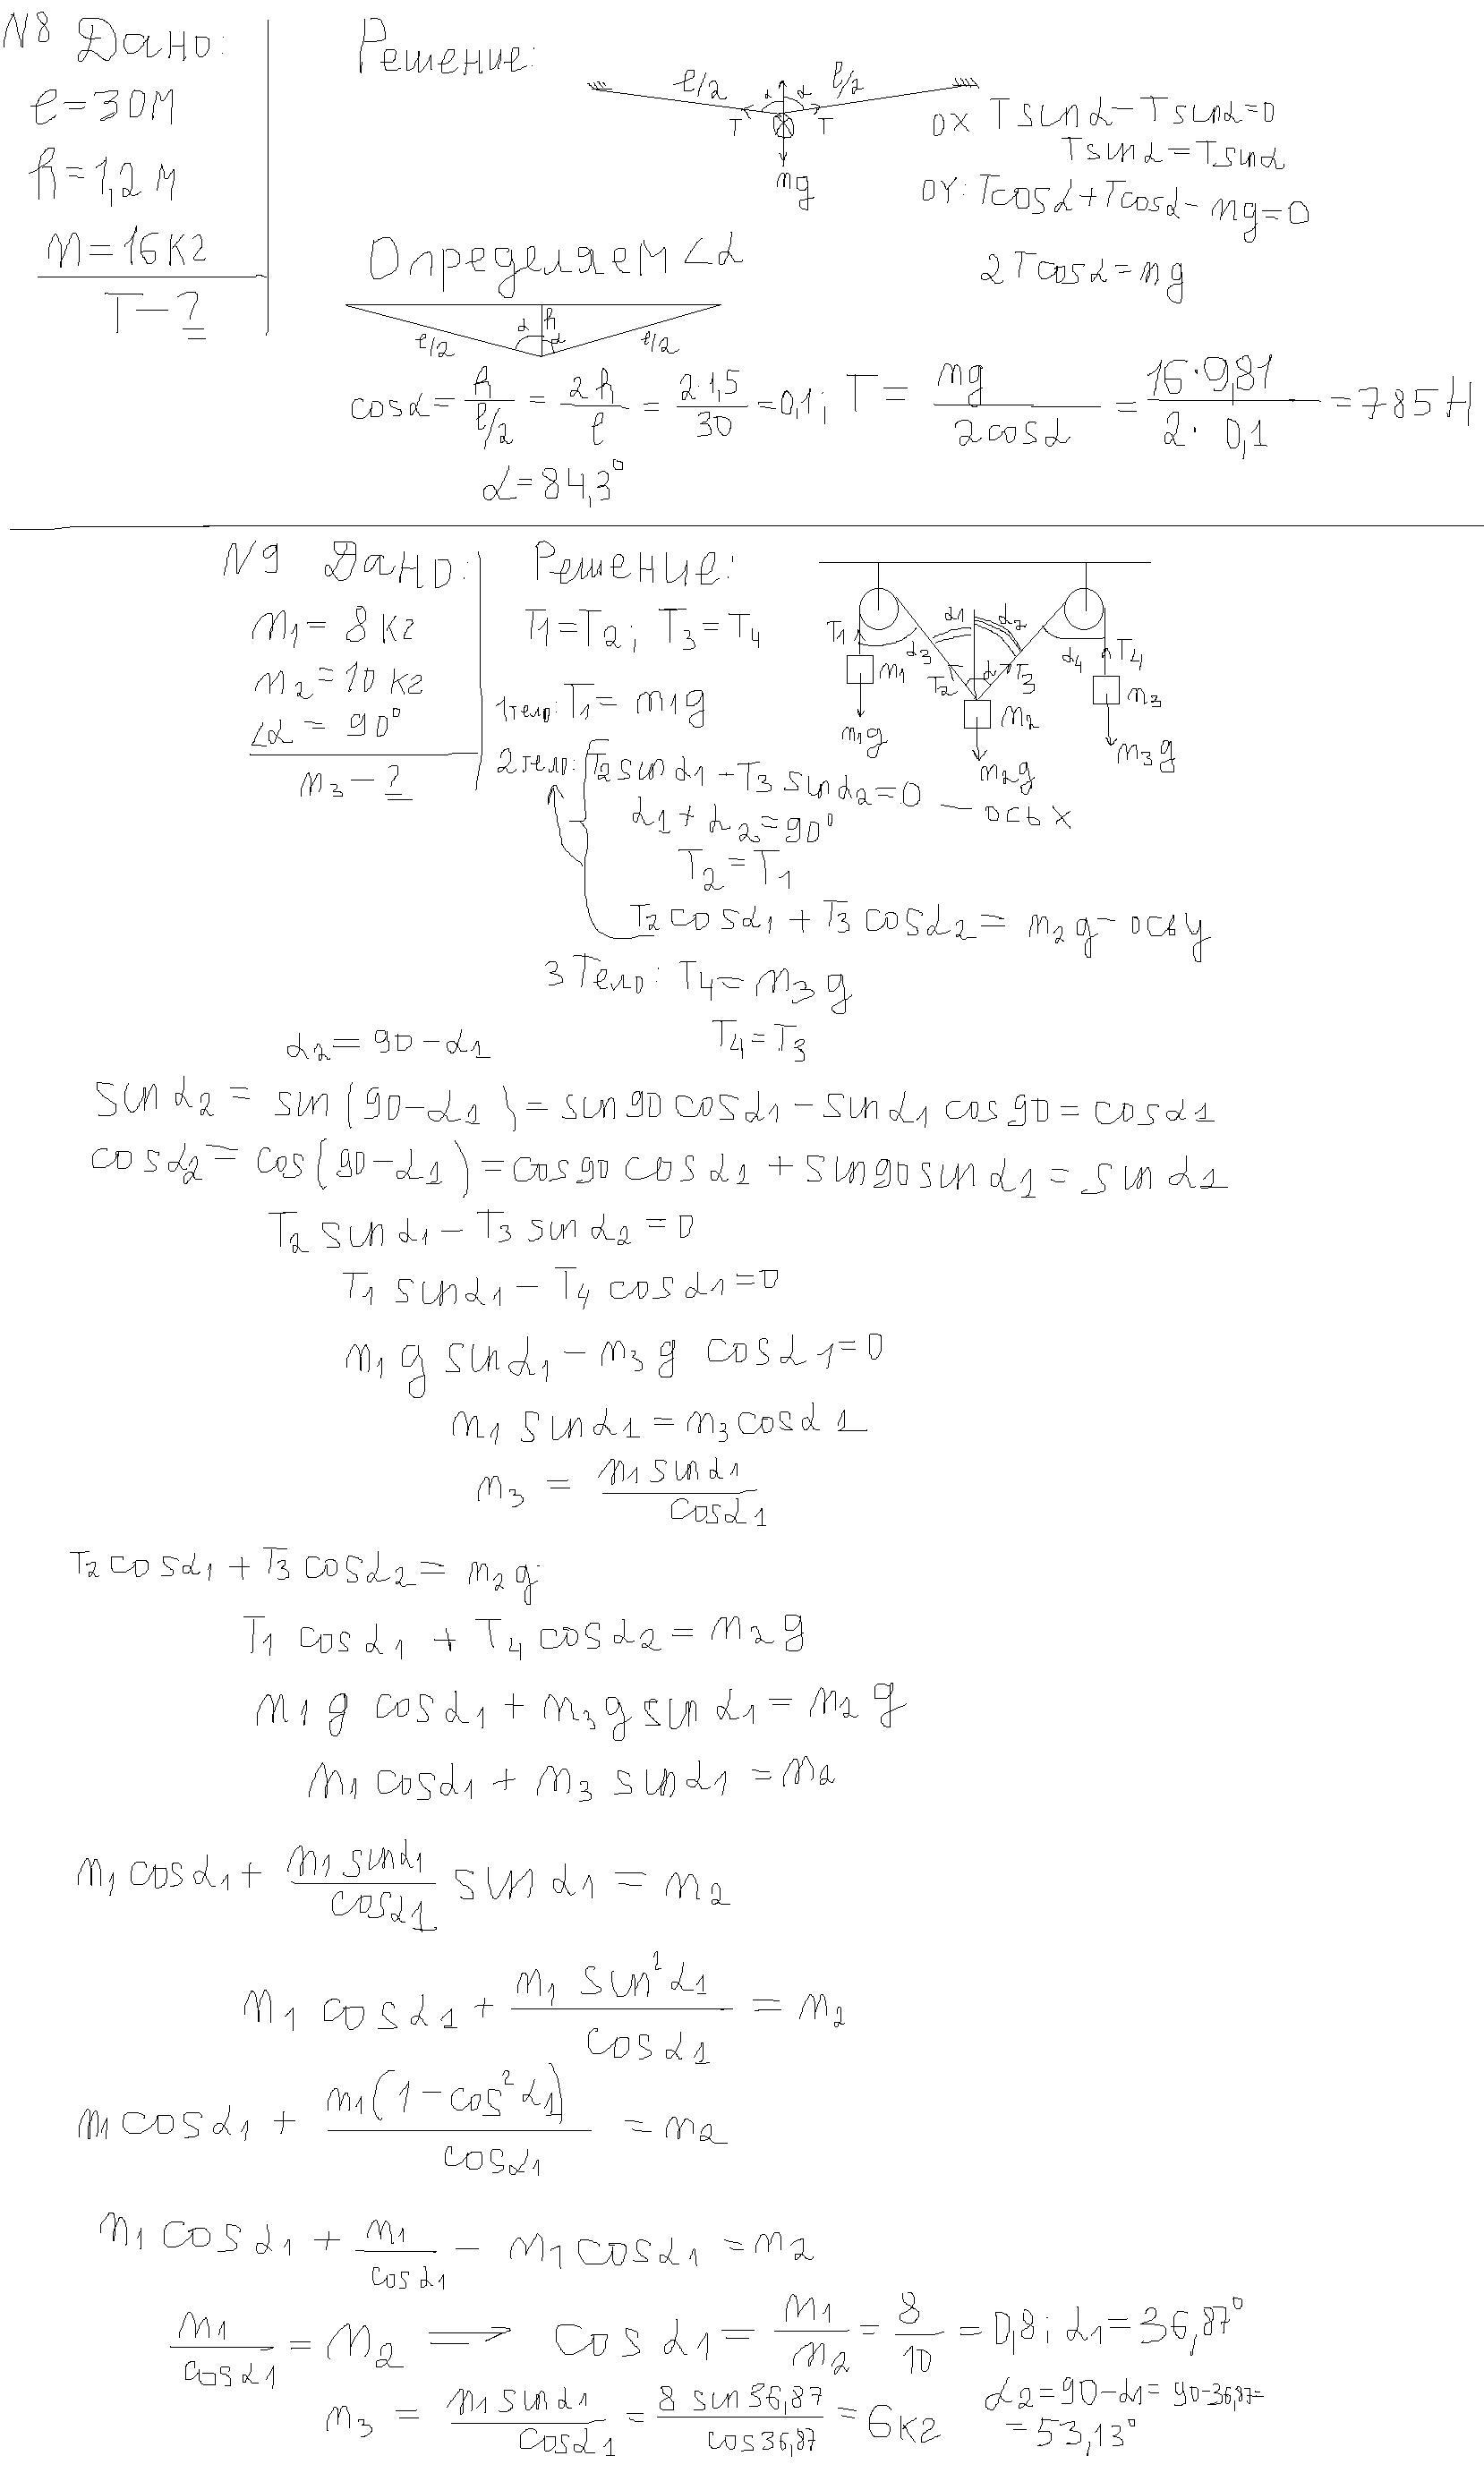 N8 Дано:
l=30м
h=1,2м
m=16кг
T-?
Решение:
l/2 α α l/2
T T
mg
0X Tsinα-Tsinα=0
Tsinα=Tsinα
0Y: Tcosα+Tcosα-mg=0
2Tcosα=mg
Определяем ∠α
α h α
l/2 l/2
cosα=h/(l/2)=2h/l=2·1,5/30=0,1; T=mg/2cosα=16·9,81/2·0,1=785Н
α=84,3°
N9 Дано:
m1=8кг
m2=10кг
∠α=90°
m3-?
Решение:
T1=T2; T3=T4
α1 α2
T1 α3 α4 T4
m1 T2 α T3 m3
m1g m2 m3g
m2g
1тело: T1=m1g
2тело: T2sinα1-T3sinα2=0 - ось x
α1+α2=90°
T2=T1
T2cosα1+T3cosα2=m2g-осьy
3Тело: T4=m3g
T4=T3
α2=90-α1
sinα2=sin(90-α1)=sin90cosα1-sinα1cos90=cosα1
cosα2=cos(90-α1)=cos90cosα1+sin90sinα1=sinα1
T2sinα1-T3sinα2=0
T1sinα1-T4cosα1=0
m1gsinα1-m3gcosα1=0
m1sinα1=m3cosα1
m3=m1sinα1/cosα1
T2cosα1+T3cosα2=m2g
T1cosα1+T4cosα2=m2g
m1gcosα1+m3gsinα1=m2g
m1cosα1+m3sinα1=m2
m1cosα1+m1sinα1/cosα1 sinα1=m2
m1cosα1+m1sin²α1/cosα1=m2
m1cosα1+m1(1-cos²α1)/cosα1=m2
m1cosα1+m1/cosα1-m1cosα1=m2
m1/cosα1=m2 ⇒ cosα1=m1/m2=8/10=0,8; α1=36,87°
m3=m1sinα1/cosα1=8sin36,87/cos36,87=6кг
α2=90-α1=90-36,87=
=53,13°